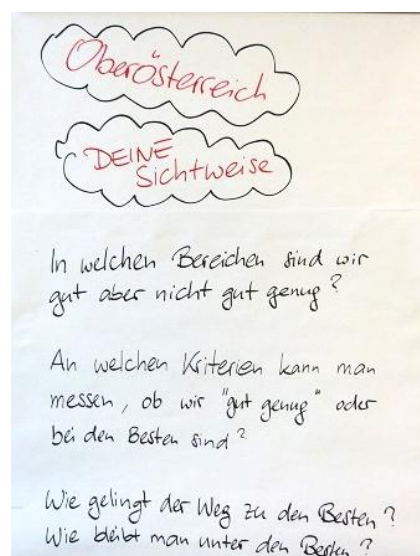 Oberösterreich
DEINE
Sichtweise
In welchen Bereichen sind wir
gut aber nicht gut genug?
An welchen Kriterien kann man
messen, ob wir "gut genug" oder
bei den Besten sind?
Wie gelingt der Weg zu den Besten?
Wie bleibt man unter den Besten?